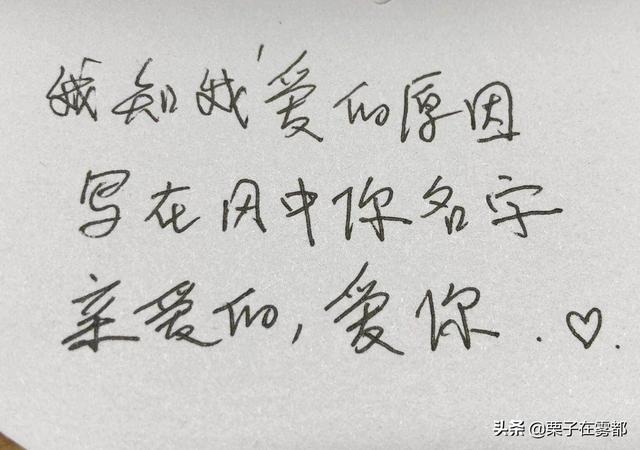 知我爱的原因
写在风中你名字
亲爱的,爱你.♡.
头条 @栗子在雾都